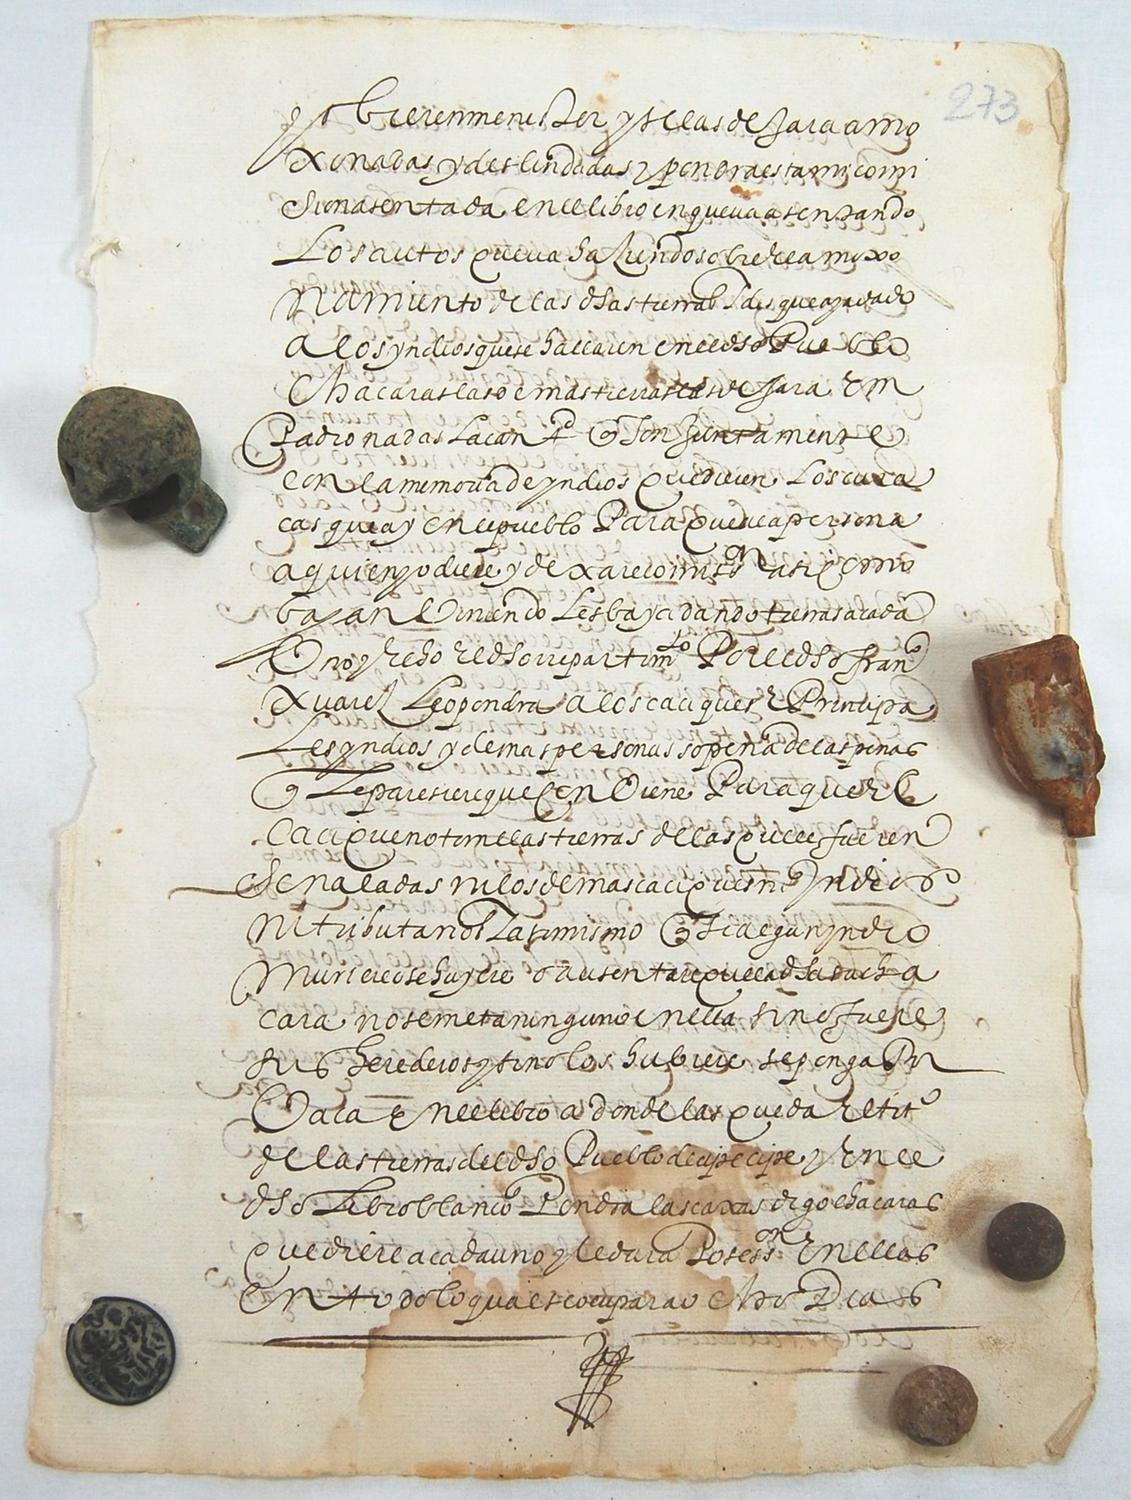 273
obieren menester y se las dejara amo
xonadas y deslindadas y pondra esta mi comi
sion asentada en el libro en que va asentando
Los autos que va haziendo sobre el amoxo
namiento de las dhas tierras
a los yndios que se hallaren en el dho Pueblo
chacaras las demas tierras dejara em
Padronadas juntamente
con la memoria de yndios que dieren Los cura
cas que ay en el pueblo Para que la persona
a quien yo diere y dexare comison asi como
bayan biniendo Les baya dando tierras a cada
Uno y fecho el dho repartimto Por el dho franco
Xuarez Le pondra a los caciques e Principa
Les yndios y demas personas so pena de las penas
q Le paresiere que conbiene Para que el
cacique no tome las tierras de las que le fueren
Señaladas ni los demas caciques ni yndios
ni tributarios y asimismo q si algun yndio
muriere o se huyere o ausentare que en la dha cha
cara no se meta ninguno en ella sino fuere
sus herederos y si no los hubiere se ponga Por
Vaca en el libro a donde las queda el titº
de las tierras del dho Pueblo de cipe cipe y en el
dho Libro blanco Pondra las caxas digo chacaras
que diere a cada uno y le dara Posesson en ellas
En todo lo qual se ocupara ocho Dias